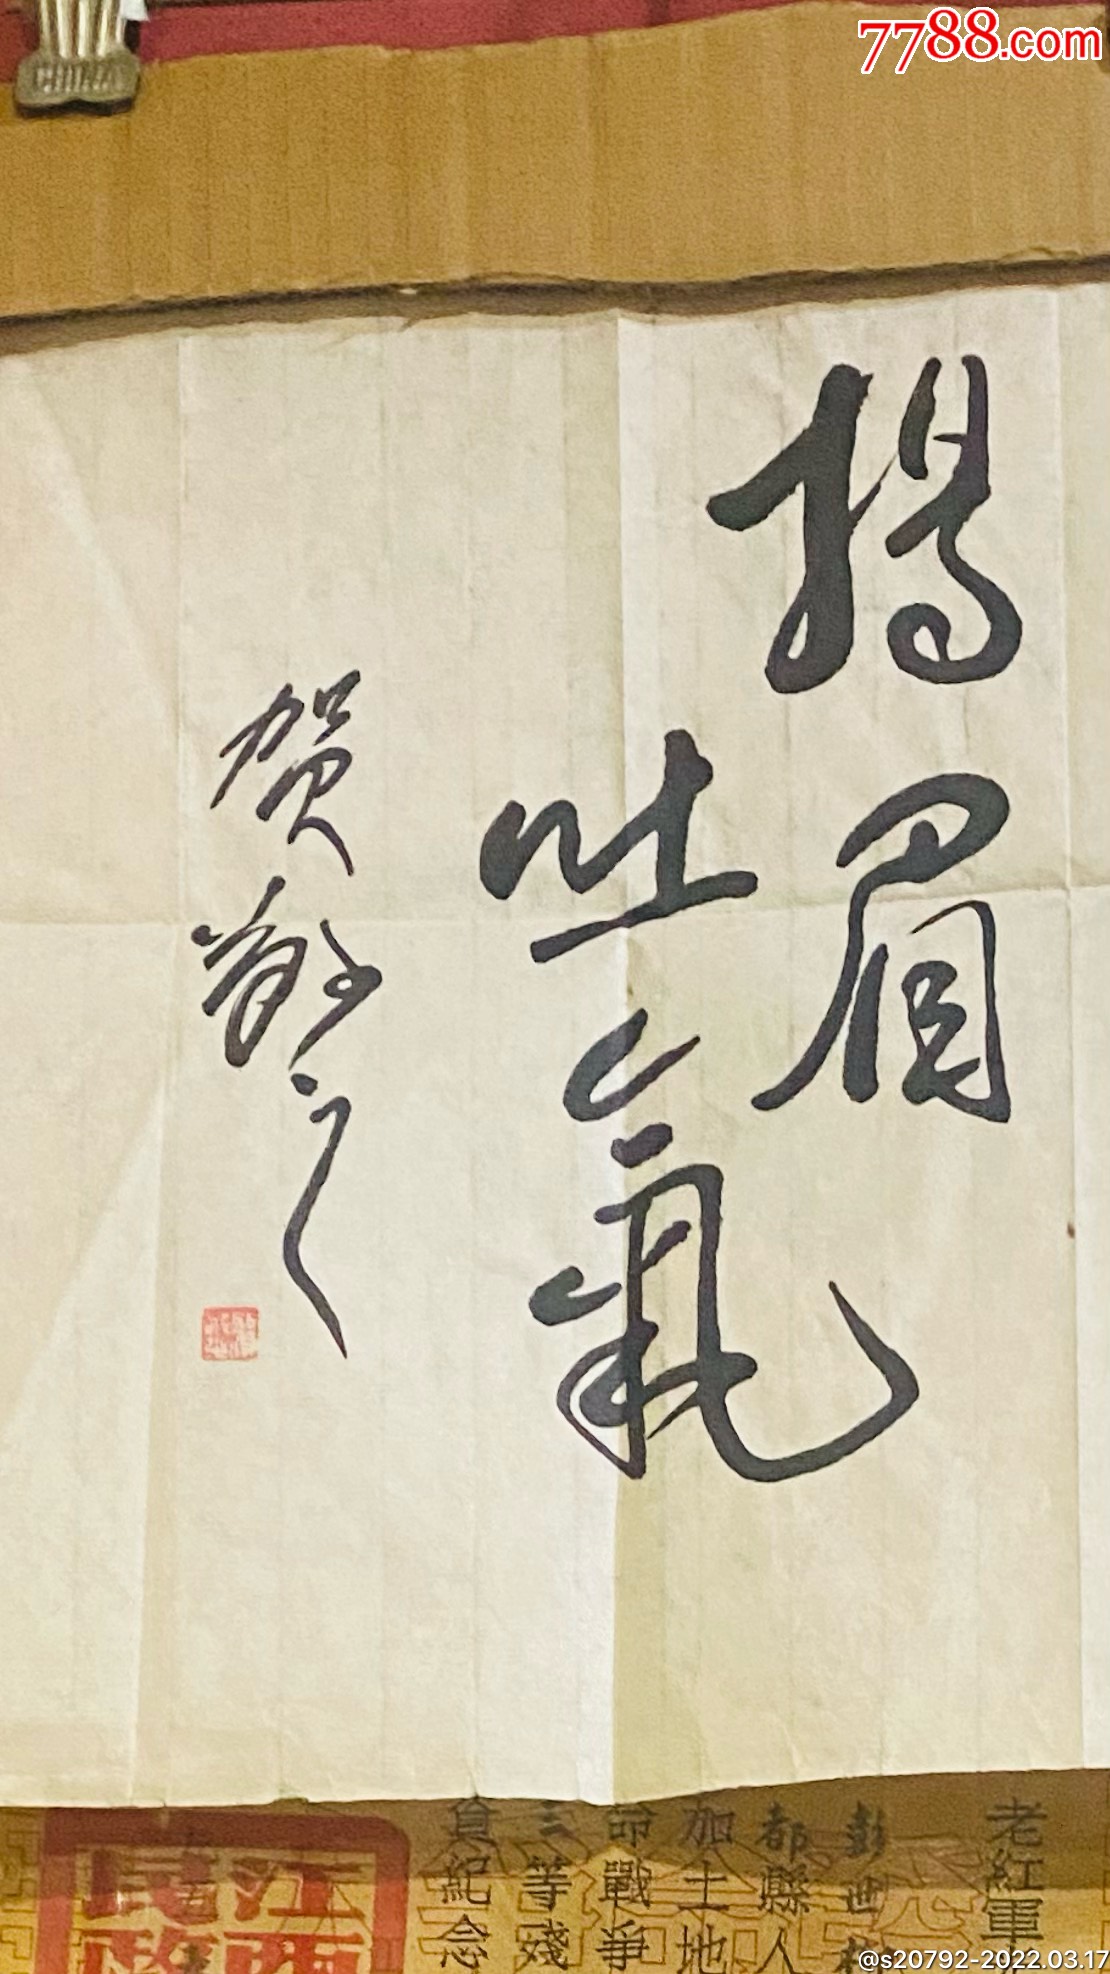 7788.com
CHINA
揚眉
吐氣
贺敬之
老紅軍
彭世
都縣人
加土地
命戰爭
三等殘
員紀念
江西
@s20792-2022.03.17